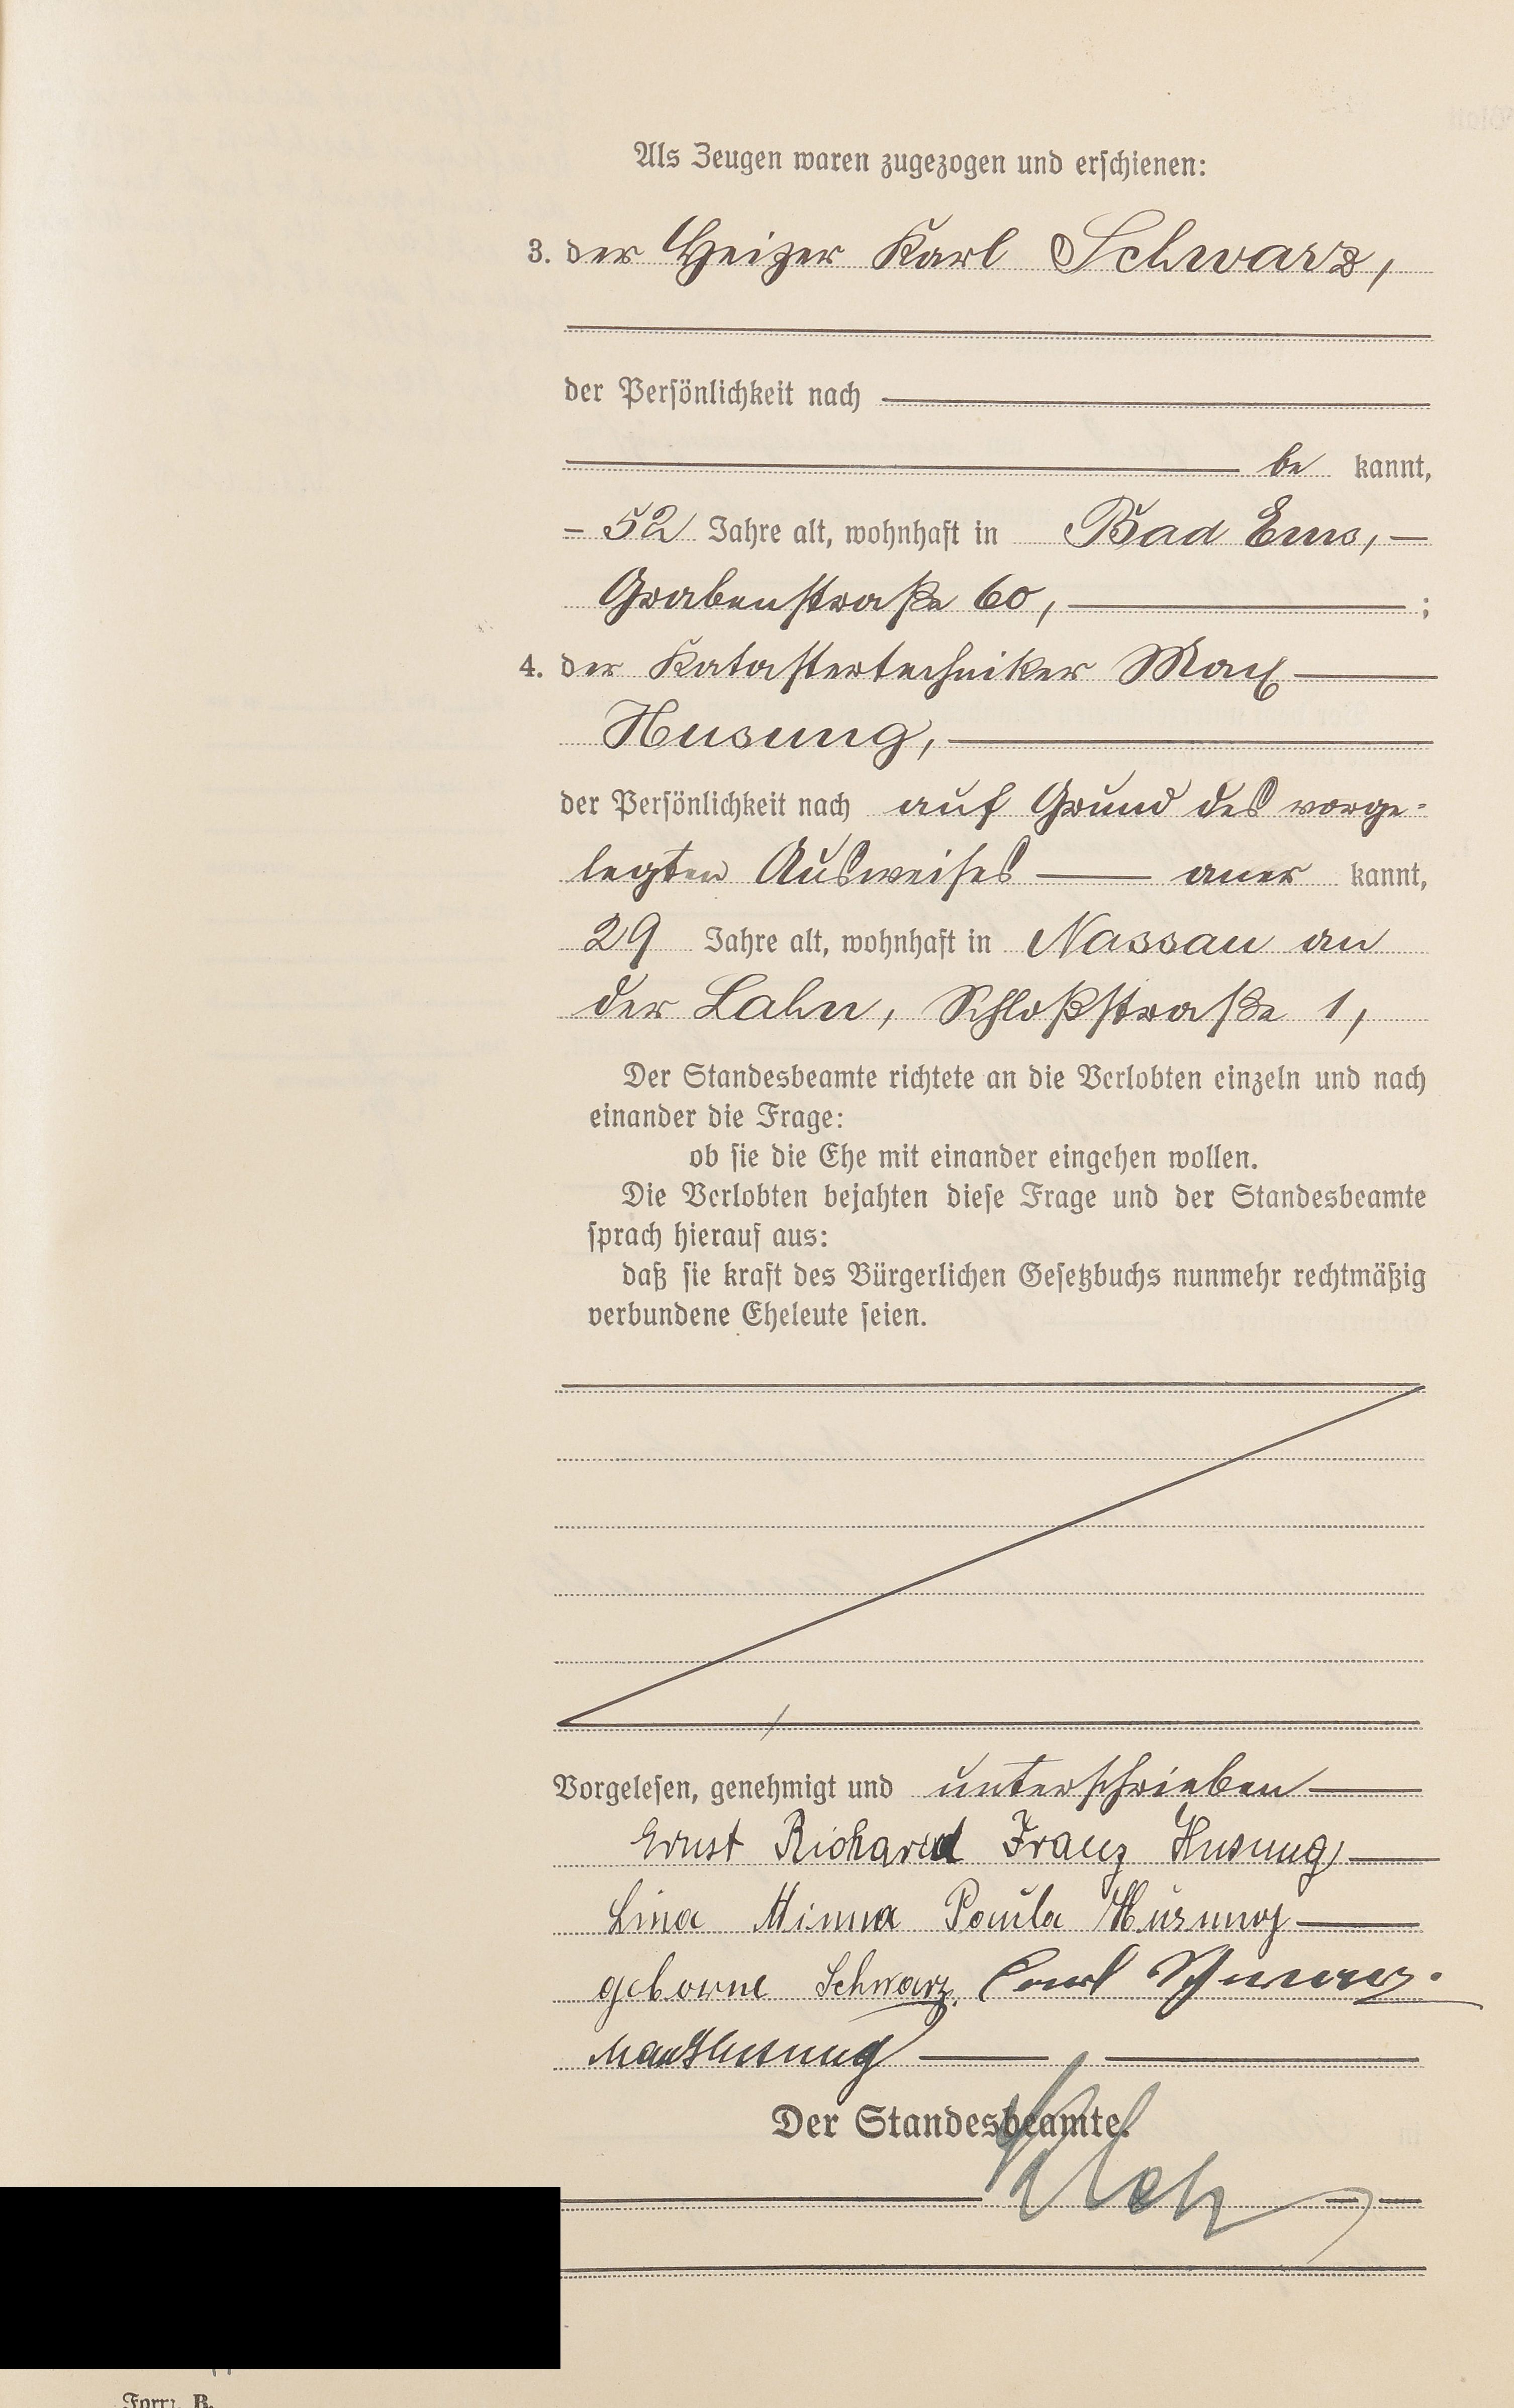 Als Zeugen waren zugezogen und erschienen:
3. der Heizer Karl Schwarz,
der Persönlichkeit nach
be kannt,
52 Jahre alt, wohnhaft in Bad Ems,
Grabenstraße 60, ;
4. der Katastertechniker Max
Husung,
der Persönlichkeit nach auf Grund des vorge-
legten Ausweises aner kannt,
29 Jahre alt, wohnhaft in Nassau an
der Lahn, Schloßstraße 1,
Der Standesbeamte richtete an die Verlobten einzeln und nach
einander die Frage:
ob sie die Ehe mit einander eingehen wollen.
Die Verlobten bejahten diese Frage und der Standesbeamte
sprach hierauf aus:
daß sie kraft des Bürgerlichen Gesetzbuchs nunmehr rechtmäßig
verbundene Eheleute seien.
Vorgelesen, genehmigt und unterschrieben
Ernst Richard Franz Husung
Lina Minna Paula Husung
geborne Schwarz. Carl Schwarz.
Max Husung
Der Standesbeamte.
Form. B.